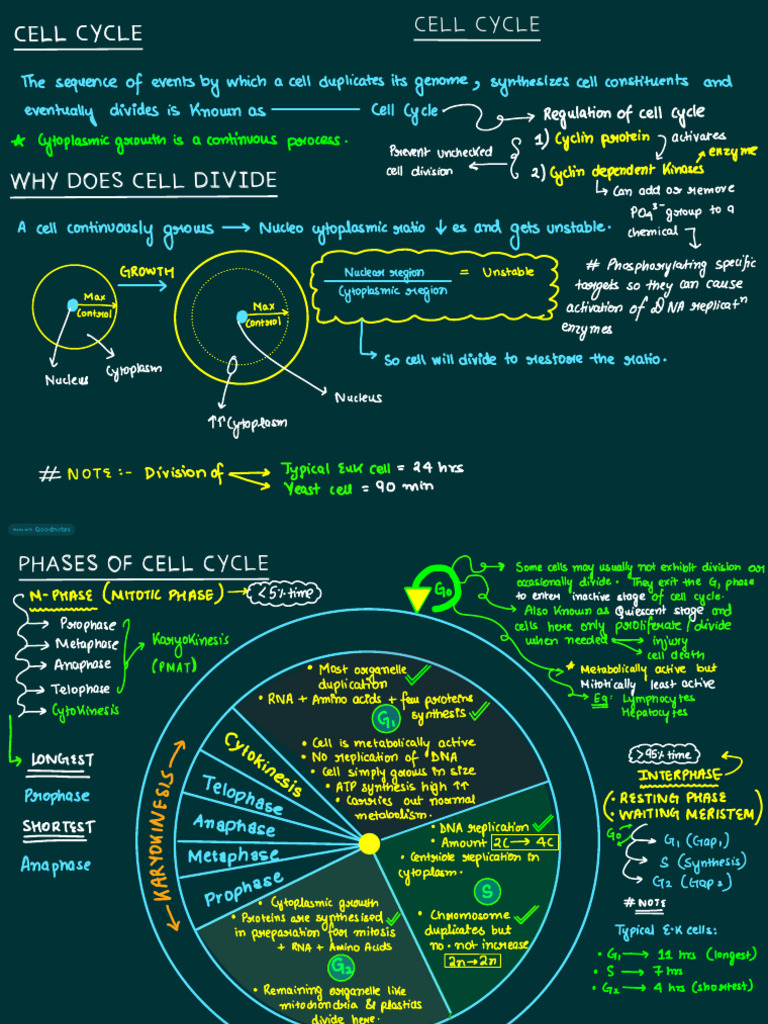 CELL CYCLE
CELL CYCLE
The sequence of events by which a cell duplicates its genome, synthesizes cell constituents and
eventually divides is known as Cell Cycle
★ Cytoplasmic growth is a continuous process.
Regulation of cell cycle
1) Cyclin protein activates
enzyme
2) Cyclin dependent Kinases
Prevent unchecked
cell division
Can add or remove
PO4³⁻ group to a
chemical
# Phosphorylating specific
targets so they can cause
activation of DNA replicatⁿ
enzymes
WHY DOES CELL DIVIDE
A cell continuously grows → Nucleo cytoplasmic ratio ↓es and gets unstable.
GROWTH
Max
Control
Nucleus
Cytoplasm
Max
Control
Nucleus
↑↑ Cytoplasm
Nuclear region
Cytoplasmic region
= Unstable
So cell will divide to restore the ratio.
# NOTE :- Division of
Typical Euk cell = 24 hrs
Yeast cell = 90 min
Made with Goodnotes
PHASES OF CELL CYCLE
M-PHASE (MITOTIC PHASE) → <5% time
Prophase
Metaphase
Anaphase
Telophase
Cytokinesis
Karyokinesis
(PMAT)
LONGEST
Prophase
SHORTEST
Anaphase
G₀
Some cells may usually not exhibit division or
occasionally divide. They exit the G₁ phase
to enter inactive stage of cell cycle.
Also Known as Quiescent stage and
cells here only proliferate/divide
when needed
injury
cell death
★ Metabolically active but
Mitotically least active
Eg: Lymphocytes
Hepatocytes
• Most organelle
duplication
• RNA + Amino acids + few proteins
synthesis
G₁
• Cell is metabolically active
• No replication of DNA
• Cell simply grows in size
• ATP synthesis high ↑↑
• Carries out normal
metabolism.
Cytokinesis
Telophase
Anaphase
Metaphase
Prophase
KARYOKINESIS
• DNA replication
• Amount 2C → 4C
• Centriole replication in
cytoplasm.
S
• Chromosome
duplicates but
no. not increase
2n→2n
• Cytoplasmic growth
• Proteins are synthesised
in preparation for mitosis
+ RNA + Amino Acids
G₂
• Remaining organelle like
mitochondria & plastids
divide here.
>95% time
INTERPHASE
(• RESTING PHASE
• WAITING MERISTEM)
G₀
G₁ (Gap₁)
S (Synthesis)
G₂ (Gap₂)
# NOTE
Typical E.K cells:
• G₁ → 11 hrs (longest)
• S → 7 hrs
• G₂ → 4 hrs (shortest)